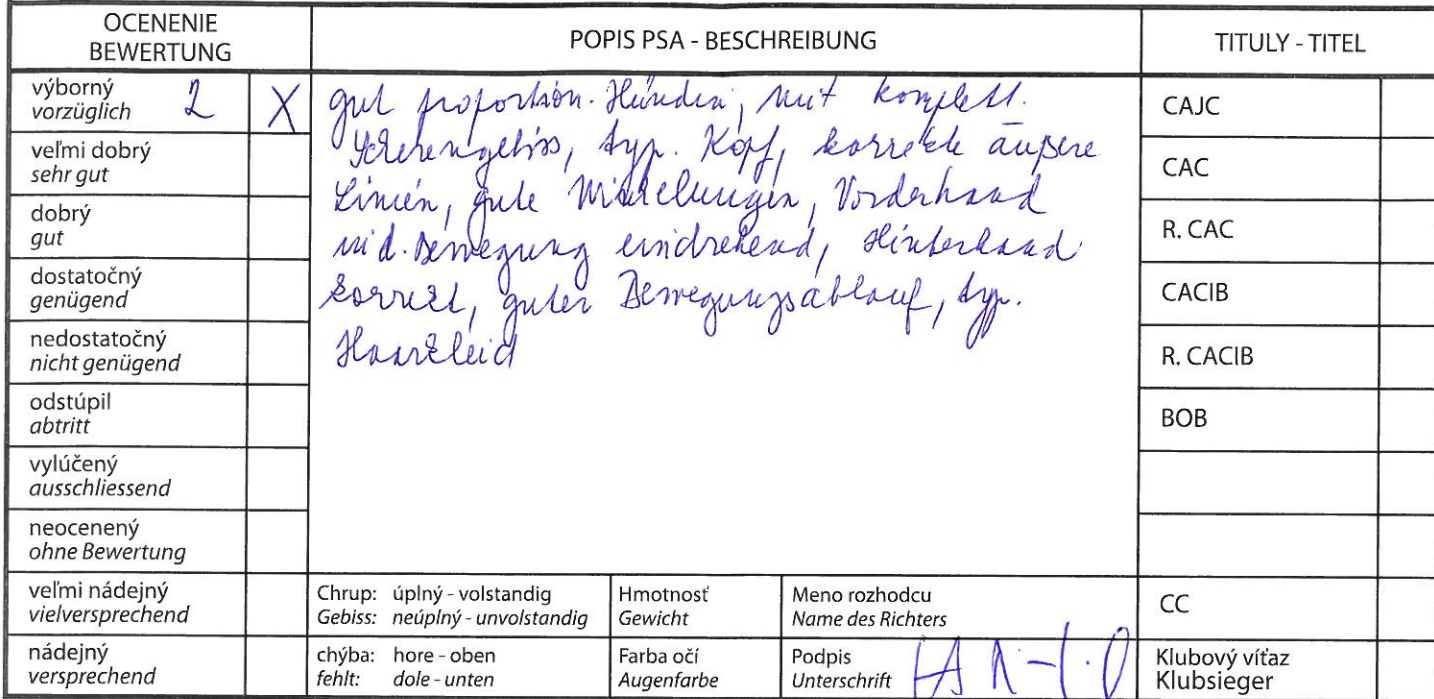 OCENENIE
BEWERTUNG
POPIS PSA - BESCHREIBUNG
TITULY - TITEL
výborný
vorzüglich
2
X
veľmi dobrý
sehr gut
dobrý
gut
dostatočný
genügend
nedostatočný
nicht genügend
odstúpil
abtritt
vylúčený
ausschliessend
neocenený
ohne Bewertung
veľmi nádejný
vielversprechend
nádejný
versprechend
gut proportion. Hündin, mit komplett.
Scherengebiss, typ. Kopf, korrekte äußere
Linien, gute Winkelungen, Vorderhand
in d. Bewegung eindrehend, Hinterhand
korrekt, guter Bewegungsablauf, typ.
Haarkleid
Chrup: úplný - volstandig
Gebiss: neúplný - unvolstandig
chýba: hore - oben
fehlt: dole - unten
Hmotnosť
Gewicht
Farba očí
Augenfarbe
Meno rozhodcu
Name des Richters
Podpis
Unterschrift
CAJC
CAC
R. CAC
CACIB
R. CACIB
BOB
CC
Klubový víťaz
Klubsieger